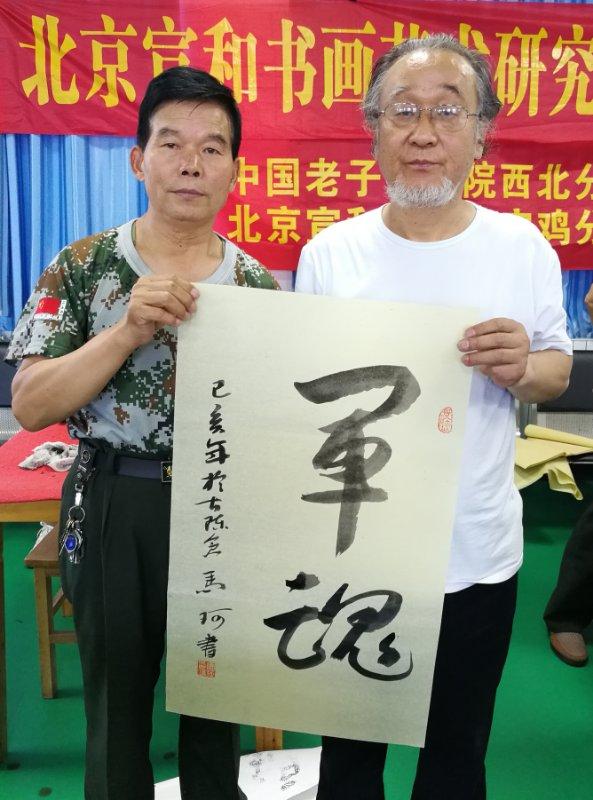 北京宣和书画艺术研究
中国老子 院西北分
北京宣和 鸡分
軍魂
己亥年於古陈仓馬珂書